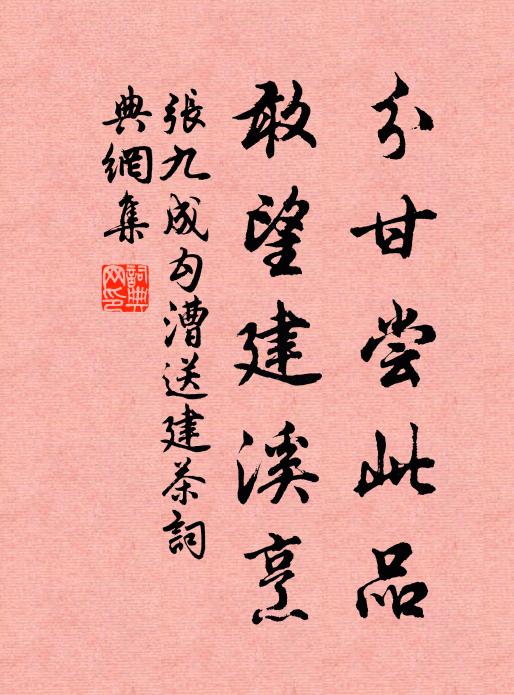 分甘尝此品
敢望建溪烹
張九成勾漕送建茶詞
典網集
詞典网印